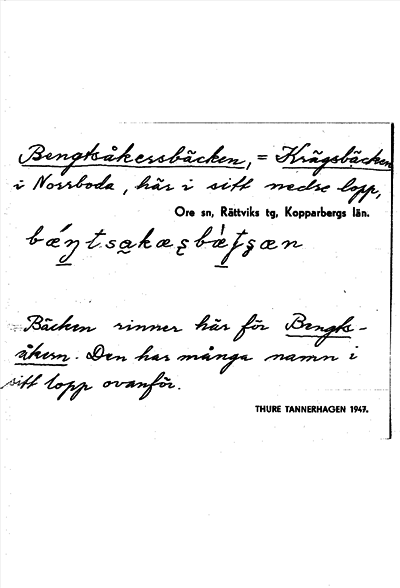 Bengtsåkersbäcken, = Krågsbäcken
i Norrboda, här i sitt nedre lopp,
Ore sn, Rättviks tg, Kopparbergs län.
Bäcken rinner här för Bengts-
åkern. Den har många namn i
sitt lopp ovanför.
THURE TANNERHAGEN 1947.